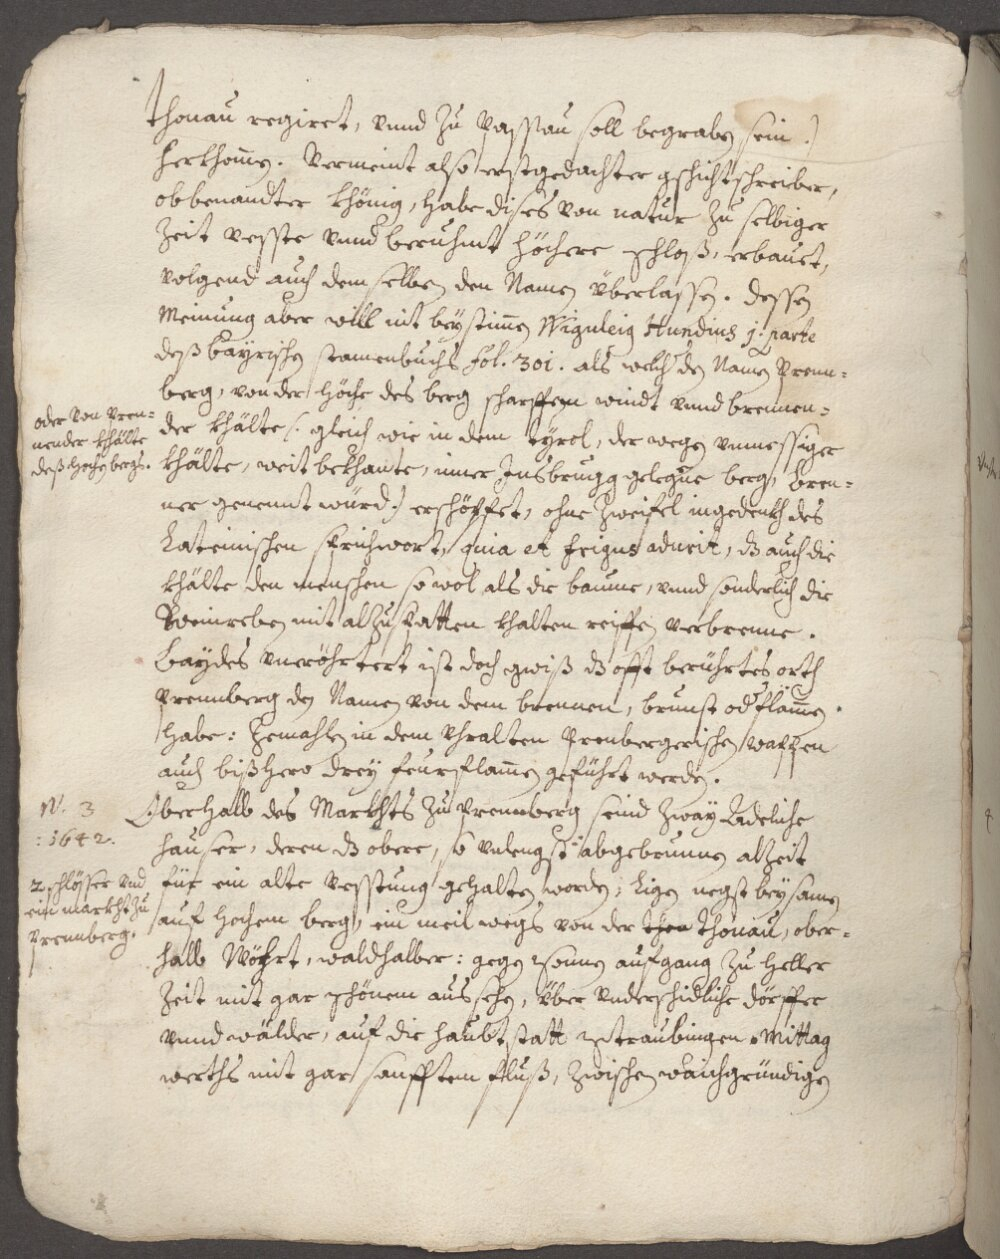 thonau regiret, vnnd zu Passau soll begraben sein.)
herkhomen. Vermeint also erstgedachter gschichtschreiber,
obbenandter khönig, habe dises von natur zu selbiger
Zeit vesste vnnd beruhmt höchere schloß, erbauet,
volgend auch dem selben den Namen überlassen. dessen
Meinung aber will nit beystimen Wiguleig Hundius j: parte
deß bayrischen stamenbuchs fol. 301. als welch den Namen Prenn=
berg, von der höche des berg scharffem windt vnnd brennen=
oder von Pren=
nender khälte
deß hochen bergs.
der khälte (: gleich wie in dem tyrol, der wegen vnmessiger
khälte, weit bekhante, inner Insbrugg gelegne berg, bren=
ner genennt würd:) erschöpffet, ohne Zweifel ingedenkh des
Lateinischen sprichwort, quia et frigus adurit, dz auch die
khälte den menschen so wol als die baume, vnnd sonderlich die
Weinreben mit alzu khalten reiffen verbrenne.
Baydes vneröhrtert ist doch gwiß dz offt berührtes orth
Prennberg den Namen von dem brennen, brunst od flamen
habe: Zemahlen in dem Vhralten Prenbergerischen wappen
auch bißhero drey feursflamen geführt werden.
N. 3
: 1642.
Oberhalb des Markhts zu Prennberg seind zway Adeliche
hauser, deren dz obere, so vnlengst abgebrunnen alzeit
2 schlösser vnd
ein markht zu
Prennberg.
für ein alte vesstung gehalten worden; Ligen negst beysamen
auf hochem berg, ein meil wegs von der thonau, ober=
halb Wöhrt, waldhalber: gegen sonnen aufgang zu heller
Zeit mit gar schönem aussehen, über vnderschidliche dörffer
vnnd wälder, auf die haubt statt Straubingen Mittag
werths mit gar sanfftem fluß, zwischen waichgründigen